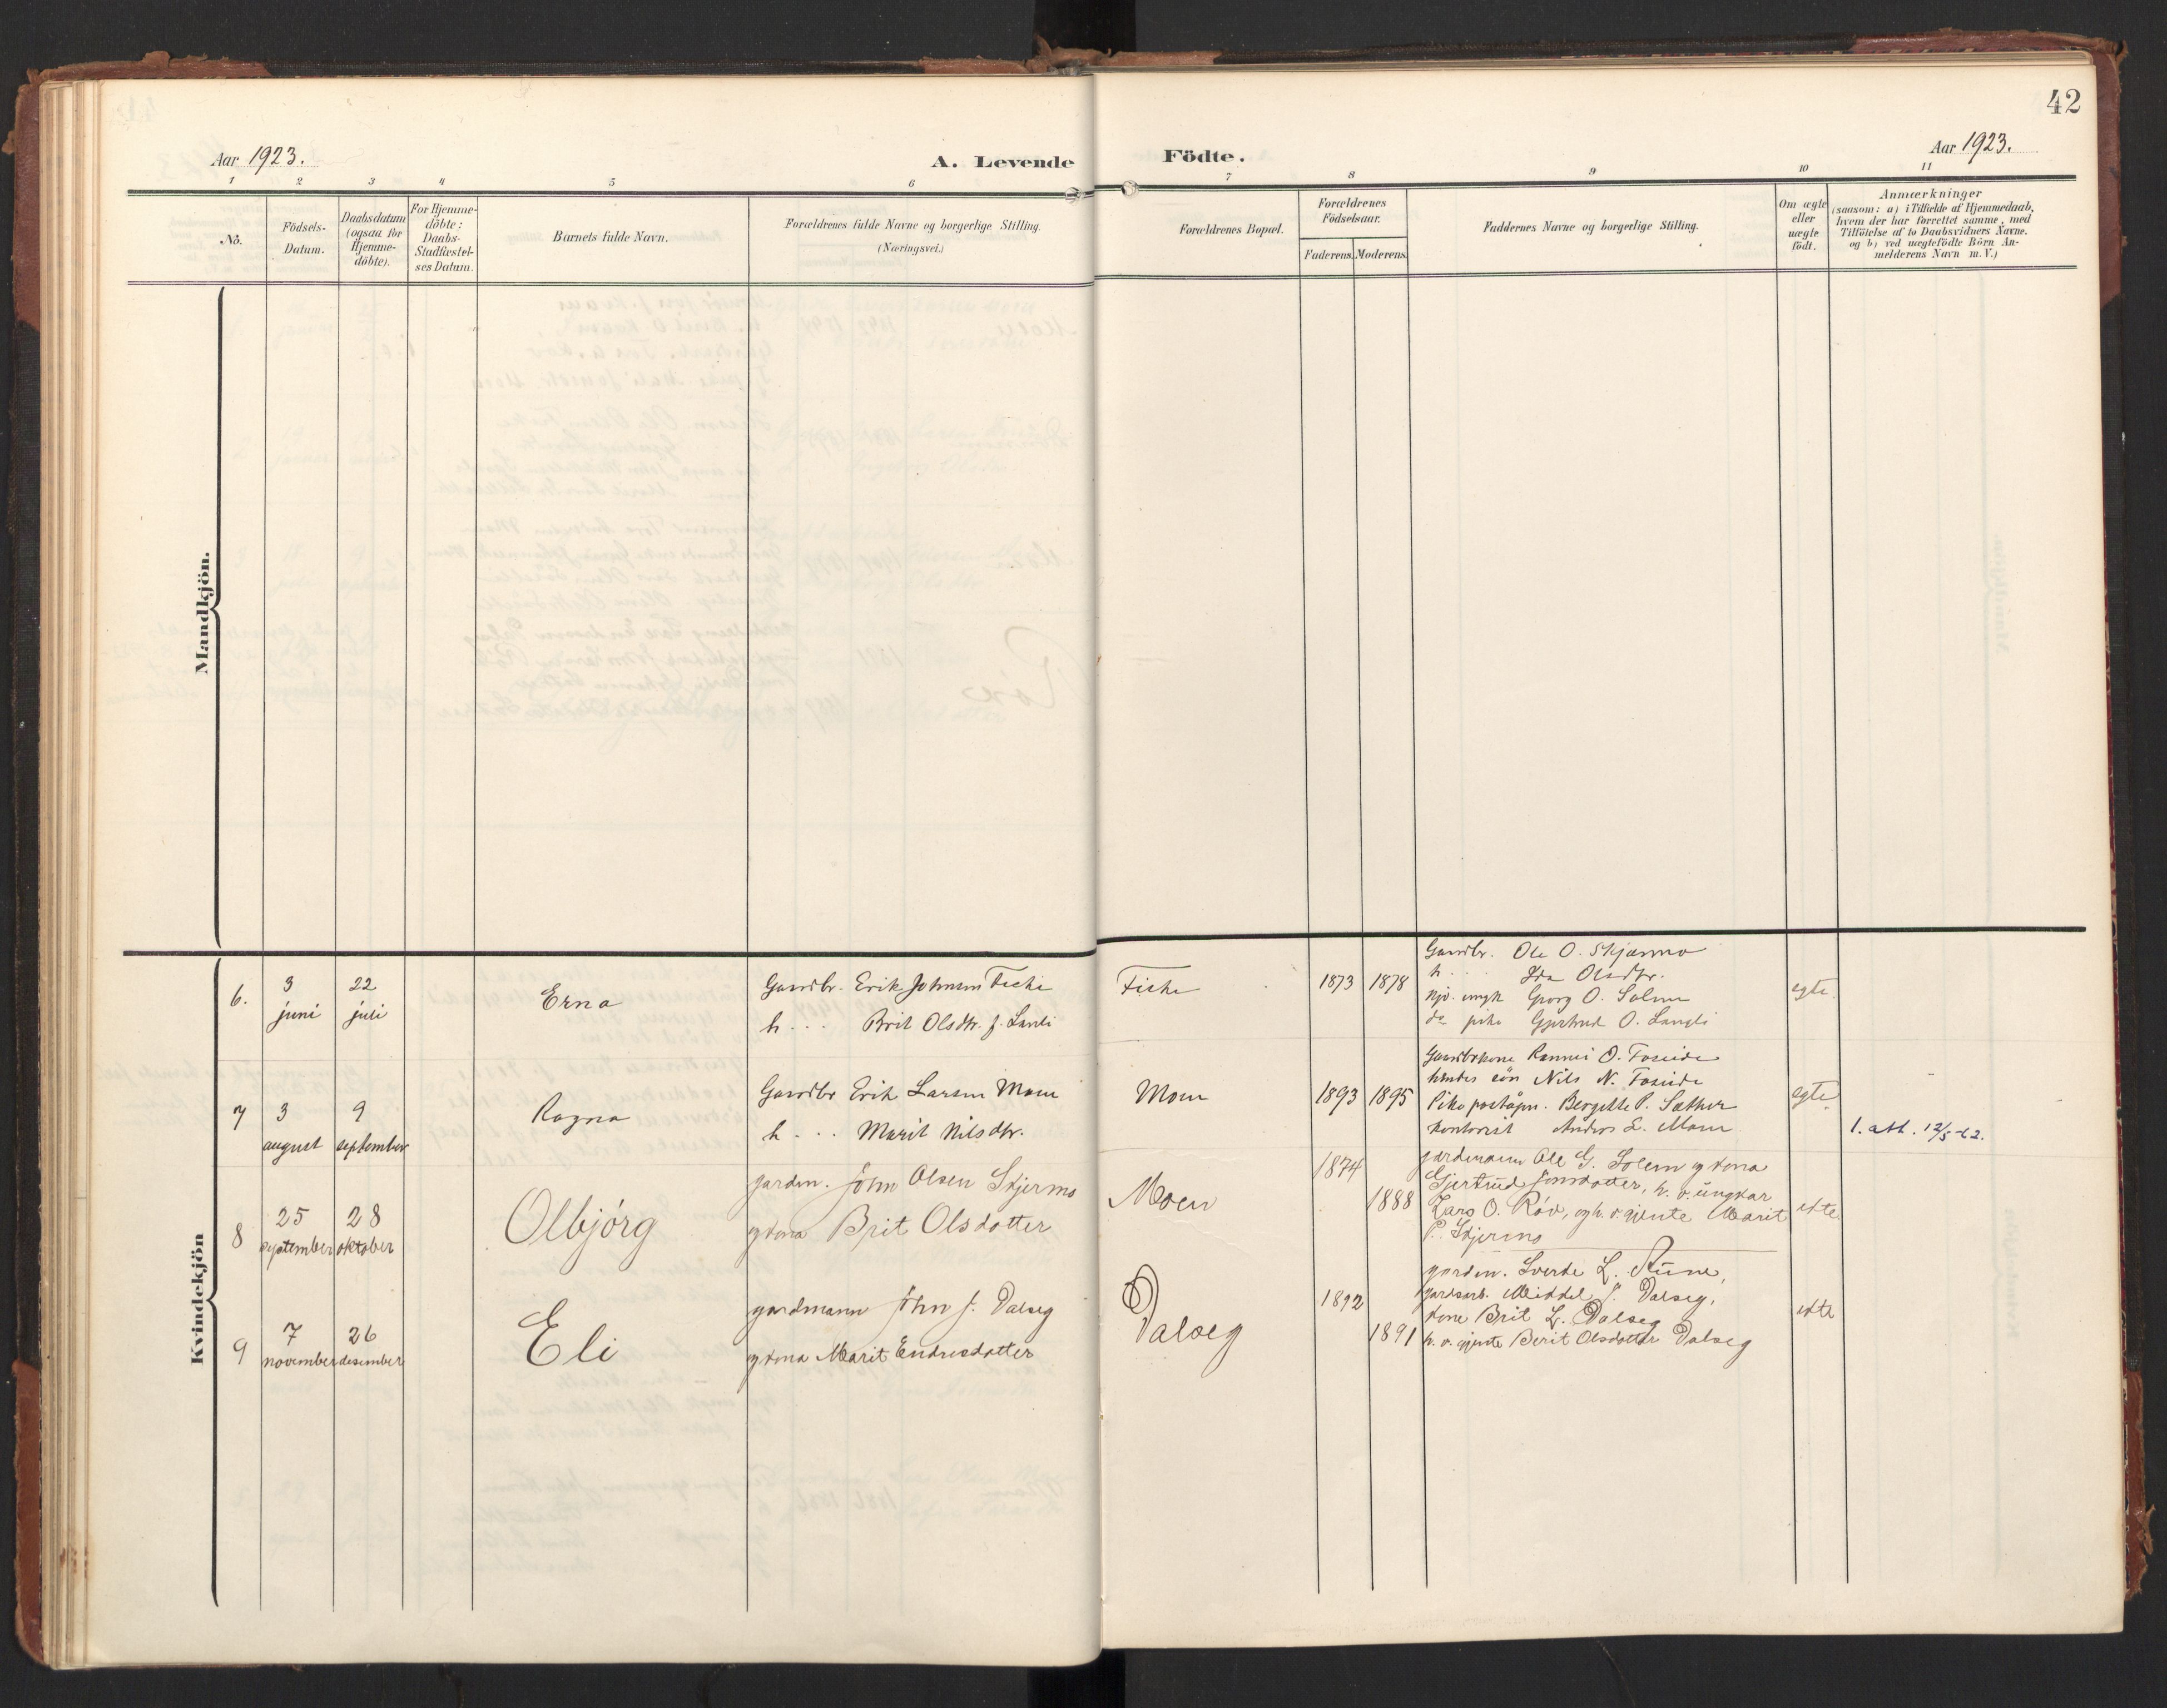 42
Aar 1923.
A. Levende
Födte.
Aar 1923.
1 2 3 4 5 6 7 8 9 10 11
No.
Födsels-
Datum.
Daabsdatum
(ogsaa for
Hjemme-
döbte).
For Hjemme-
döbte:
Daabs-
Stadfæstel-
ses Datum.
Barnets fulde Navn.
Forældrenes fulde Navne og borgerlige Stilling.
(Næringsvei.)
Forældrenes Bopæl.
Forældrenes
Födselsaar.
Faderens. Moderens.
Faddernes Navne og borgerlige Stilling.
Om ægte
eller
uægte
födt.
Anmærkninger
(saasom: a) i Tilfælde af Hjemmedaab,
hvem der har forrettet samme, med
Tilföielse af to Daabsvidners Navne.
og b) ved uægtefödte Börn An-
melderens Navn m. V.)
Mandkjön.
Kvindekjön
6.
3
juni
22
juli
Erna
Gardbr. Erik Johnsen
h. . . Brit Olsdtr. f.
1873 1878
Gardbr. Ole O. Skjærmo
h. . . Ida Olsdtr.
ungk Georg O. Solem
do pike Gjertrud O.
egte
7
3
august
9
september
Ragna
Gardbr Erik Larsen Moen
h. . . Marit Nilsdtr.
Moen
1893 1895
Gardbrkone Rannei O. Foseide
hendes sön Nils N. Foseide
Pike poståpn. Bergitte P. Sæther
Kontorist Anders L. Moen
egte
1. att. 12/5-62.
8
25
september
28
oktober
Olbjörg
gardm. John Olsen Skjermo
og kona Brit Olsdotter
Moen
1874
1888
gardmann Ole G. Solem og kona
Gjertrud Jonsdotter, h. v. ungkar
Lars O. Röv, og h. v. gjente Marit
P. Skjermo
ekte
9
7
november
26
desember
Eli
gardmann John J. Dalseg
og kona Marit Endresdotter
Dalseg
1892
1891
gardm. Sverke L. Aune,
gardarb. J. Dalseg,
kone Brit L. Dalseg
h. v. gjente Berit Olsdotter Dalseg
ekte